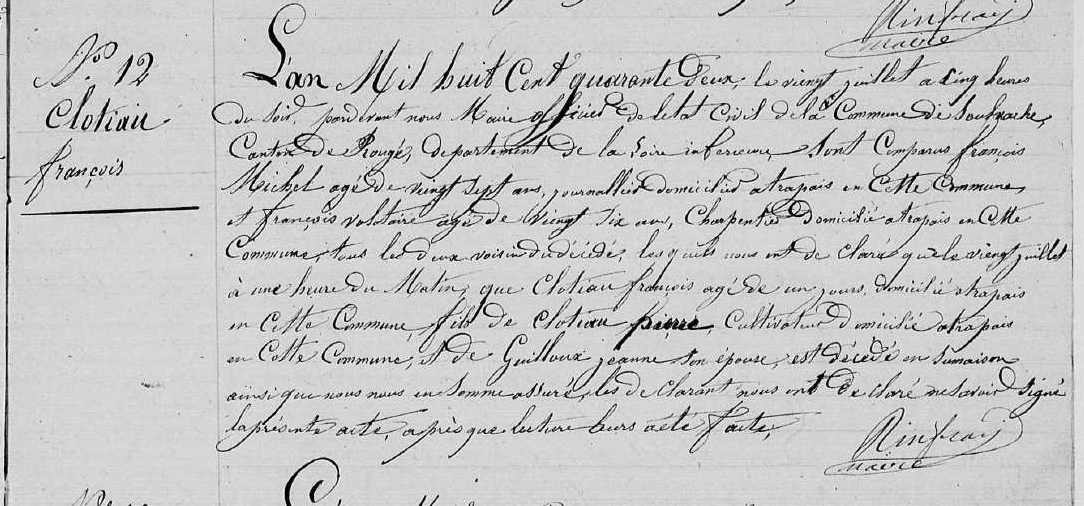 Rinfray
Maire
No 12
Clotiau
françois
L'an Mil huit Cent quarante deux, le vingt juillet a Cinq heures
du soir, pardevant nous Maire officier de letat Civil de la Commune de Soulvache,
Canton de Rougé, departement de la Loire inferieure, sont Comparus françois
Michel agé de vingt sept ans, journallier domicilié atrapais en Cette Commune,
et françois volotaire agé de vingt six ans, Charpentier domicilié atrapais en Cette
Commune, tous les deux voisin du décédé, les quels nous ont de claré que le vingt juillet
à une heure du Matin, que Clotiau françois agé de un jours, domicilié atrapais
en Cette Commune, fils de Clotiau pierre, Cultivateur domicilié atrapais
en Cette Commune, et de Guilloux jeanne son épouse, est décédé en samaison
ainsi que nous nous en somme assuré, les de clarant nous ont de claré ne savoir signé
la présente acte, après que lecture leurs aété faite,
Rinfray
Maire